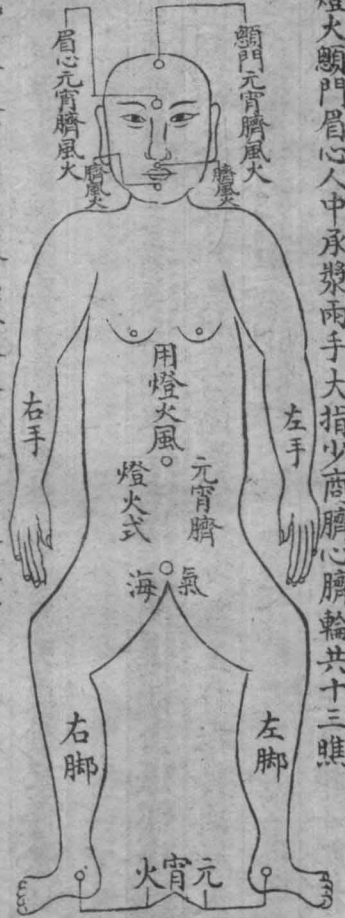 燈火顖門眉心人中承漿兩手大指少商臍心臍輪共十三燋
顖門元宵臍風火
眉心元宵臍風火
臍風火
臍風火
左手
右手
用燈火風
元宵臍
燈火式
氣海
左脚
右脚
元宵火